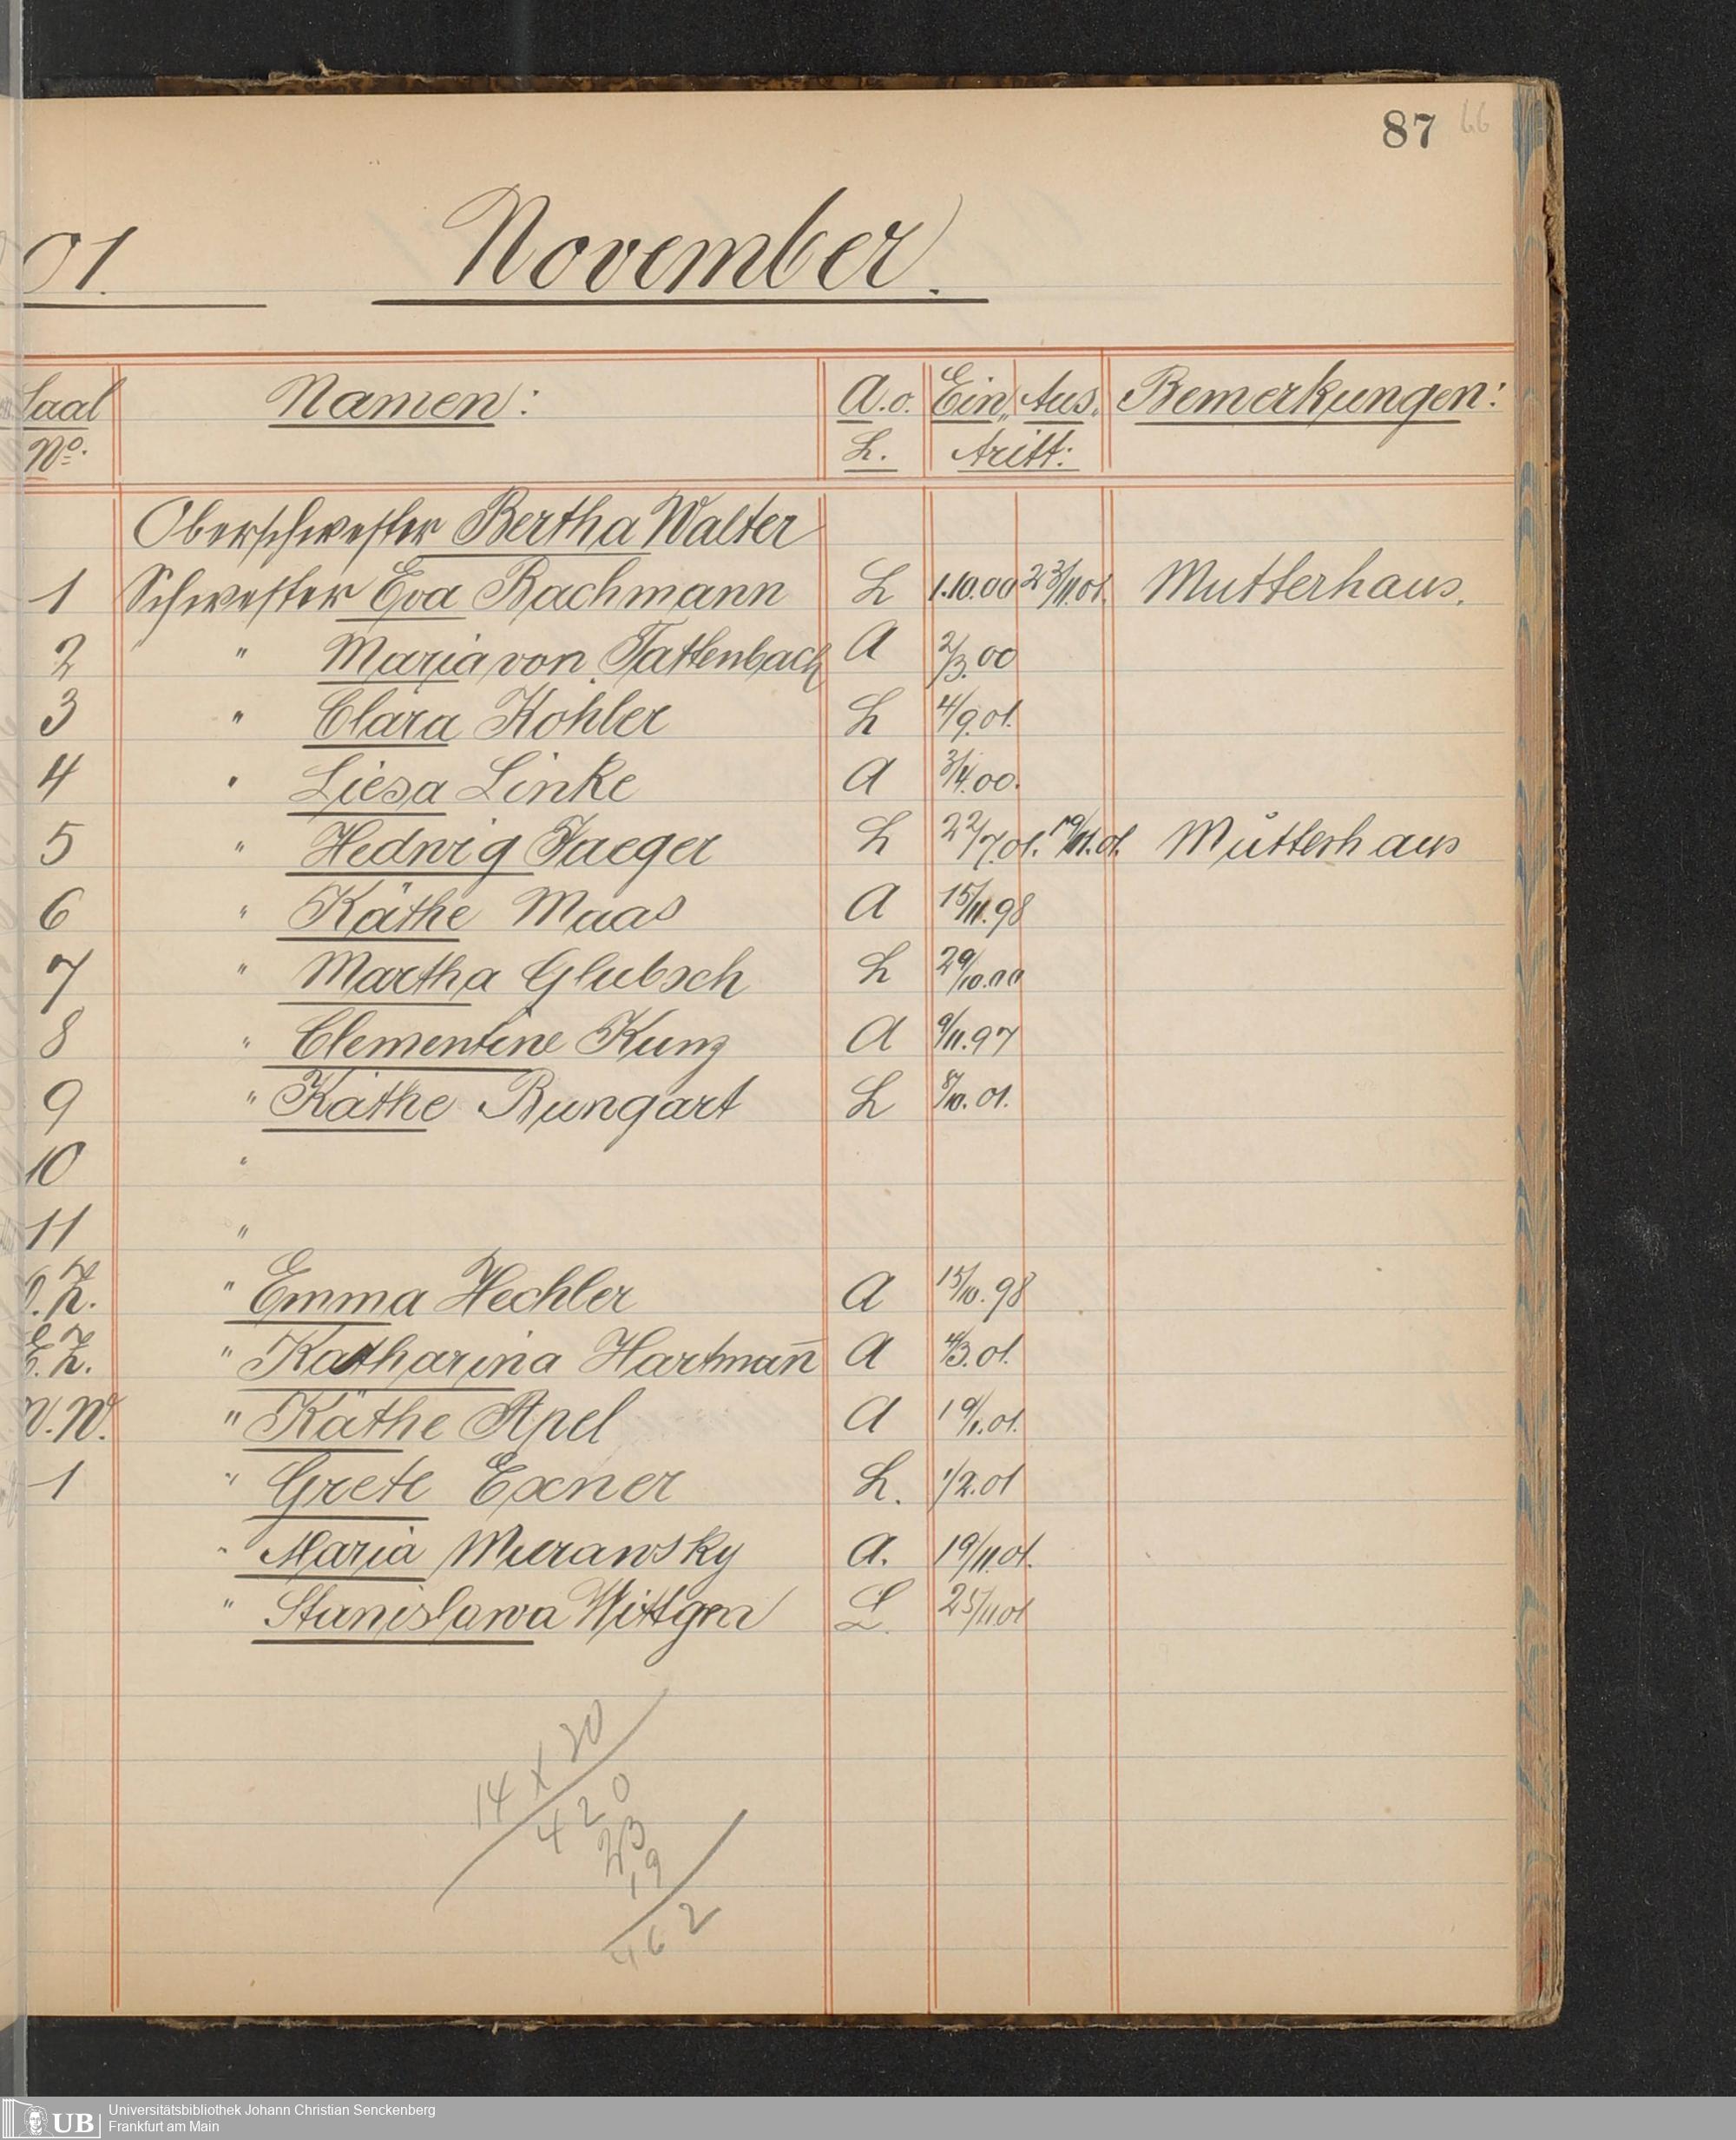 87 66
01. November.
Saal Namen: A.o. Ein„ Aus„ Bemerkungen:
No. L. tritt:
Oberschwester Bertha Walter
1 Schwester Eva Bachmann L 1.10.00 23/11.01. Mutterhaus.
2 " Maria von Tattenbach A 2/3.00
3 " Clara Kohler L 4/9.01.
4 " Liesa Linke A 3/4.00.
5 " Hedwig Jaeger L 22/7.01. 19/11.01. Mutterhaus
6 " Käthe Maas A 15/11.98
7 " Martha Glubsch L 29/10.00
8 " Clementine Kunz A 9/11.97
9 " Käthe Bungart L 8/10.01.
10 "
11 "
O.Z. " Emma Hechler A 15/10.98
E.Z. " Katharina Hartmann̄ A 4/3.01.
W. " Käthe Apel A 19/1.01.
1 " Grete Exner L. 1/2.01
" Maria Murawsky A. 19/11.01.
" Stanislawa Wittgen L. 25/11.01
14 x 30
420
23
19
462
UB Universitätsbibliothek Johann Christian Senckenberg
Frankfurt am Main